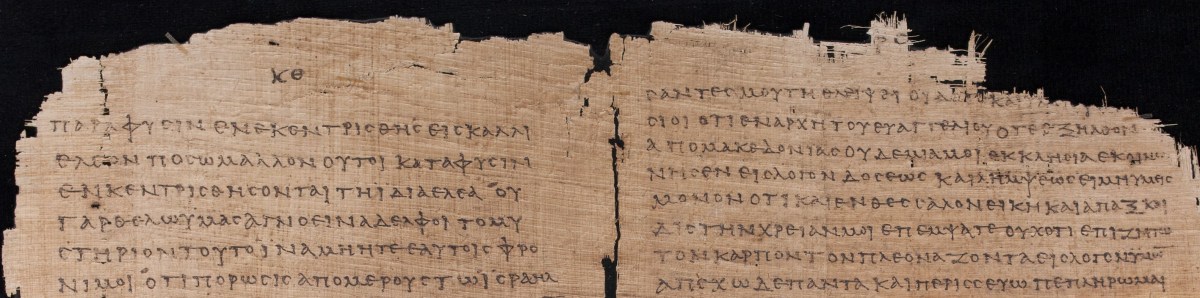 ΚΘ
ΠΑΡΑΦΥΣΙΝ ΕΝΕΚΕΝΤΡΙΣΘΗΣ ΕΙΣ ΚΑΛΛΙ
ΕΛΕΟΝ ΠΟΣΩ ΜΑΛΛΟΝ ΟΥΤΟΙ ΚΑΤΑΦΥΣΙΝ
ΕΝΚΕΝΤΡΙΣΘΗΣΟΝΤΑΙ ΤΗ ΙΔΙΑ ΕΛΕΑ ΟΥ
ΓΑΡ ΘΕΛΩ ΥΜΑΣ ΑΓΝΟΕΙΝ ΑΔΕΛΦΟΙ ΤΟ ΜΥ
ΣΤΗΡΙΟΝ ΤΟΥΤΟ ΙΝΑ ΜΗ ΗΤΕ ΕΑΥΤΟΙΣ ΦΡΟ
ΝΙΜΟΙ ΟΤΙ ΠΟΡΩΣΙΣ ΑΠΟ ΜΕΡΟΥΣ ΤΩ ΙΣΡΑΗΛ
ΣΑΝΤΕΣ ΜΟΥ ΤΗ ΘΛΕΙΨΕΙ
ΣΙΟΙ ΟΤΙ ΕΝ ΑΡΧΗ ΤΟΥ ΕΥΑΓΓΕΛΙΟΥ ΟΤΕ ΕΞΗΛΘΟΝ
ΑΠΟ ΜΑΚΕΔΟΝΙΑΣ ΟΥΔΕΜΙΑ ΜΟΙ ΕΚΚΛΗΣΙΑ ΕΚΟΙΝΩ
ΝΗΣΕΝ ΕΙΣ ΛΟΓΟΝ ΔΟΣΕΩΣ ΚΑΙ ΛΗΜΨΕΩΣ ΕΙ ΜΗ ΥΜΕΙΣ
ΜΟΝΟΝ ΟΤΙ ΚΑΙ ΕΝ ΘΕΣΣΑΛΟΝΕΙΚΗ ΚΑΙ ΑΠΑΞ ΚΑΙ
ΔΙΣ ΤΗΝ ΧΡΕΙΑΝ ΜΟΙ ΕΠΕΜΨΑΤΕ ΟΥΧ ΟΤΙ ΕΠΙΖΗΤΩ
ΤΟΝ ΚΑΡΠΟΝ ΤΟΝ ΠΛΕΟΝΑΖΟΝΤΑ ΕΙΣ ΛΟΓΟΝ ΥΜΩΝ
ΑΠΕΧΩ ΔΕ ΠΑΝΤΑ ΚΑΙ ΠΕΡΙΣΣΕΥΩ ΠΕΠΛΗΡΩΜΑΙ